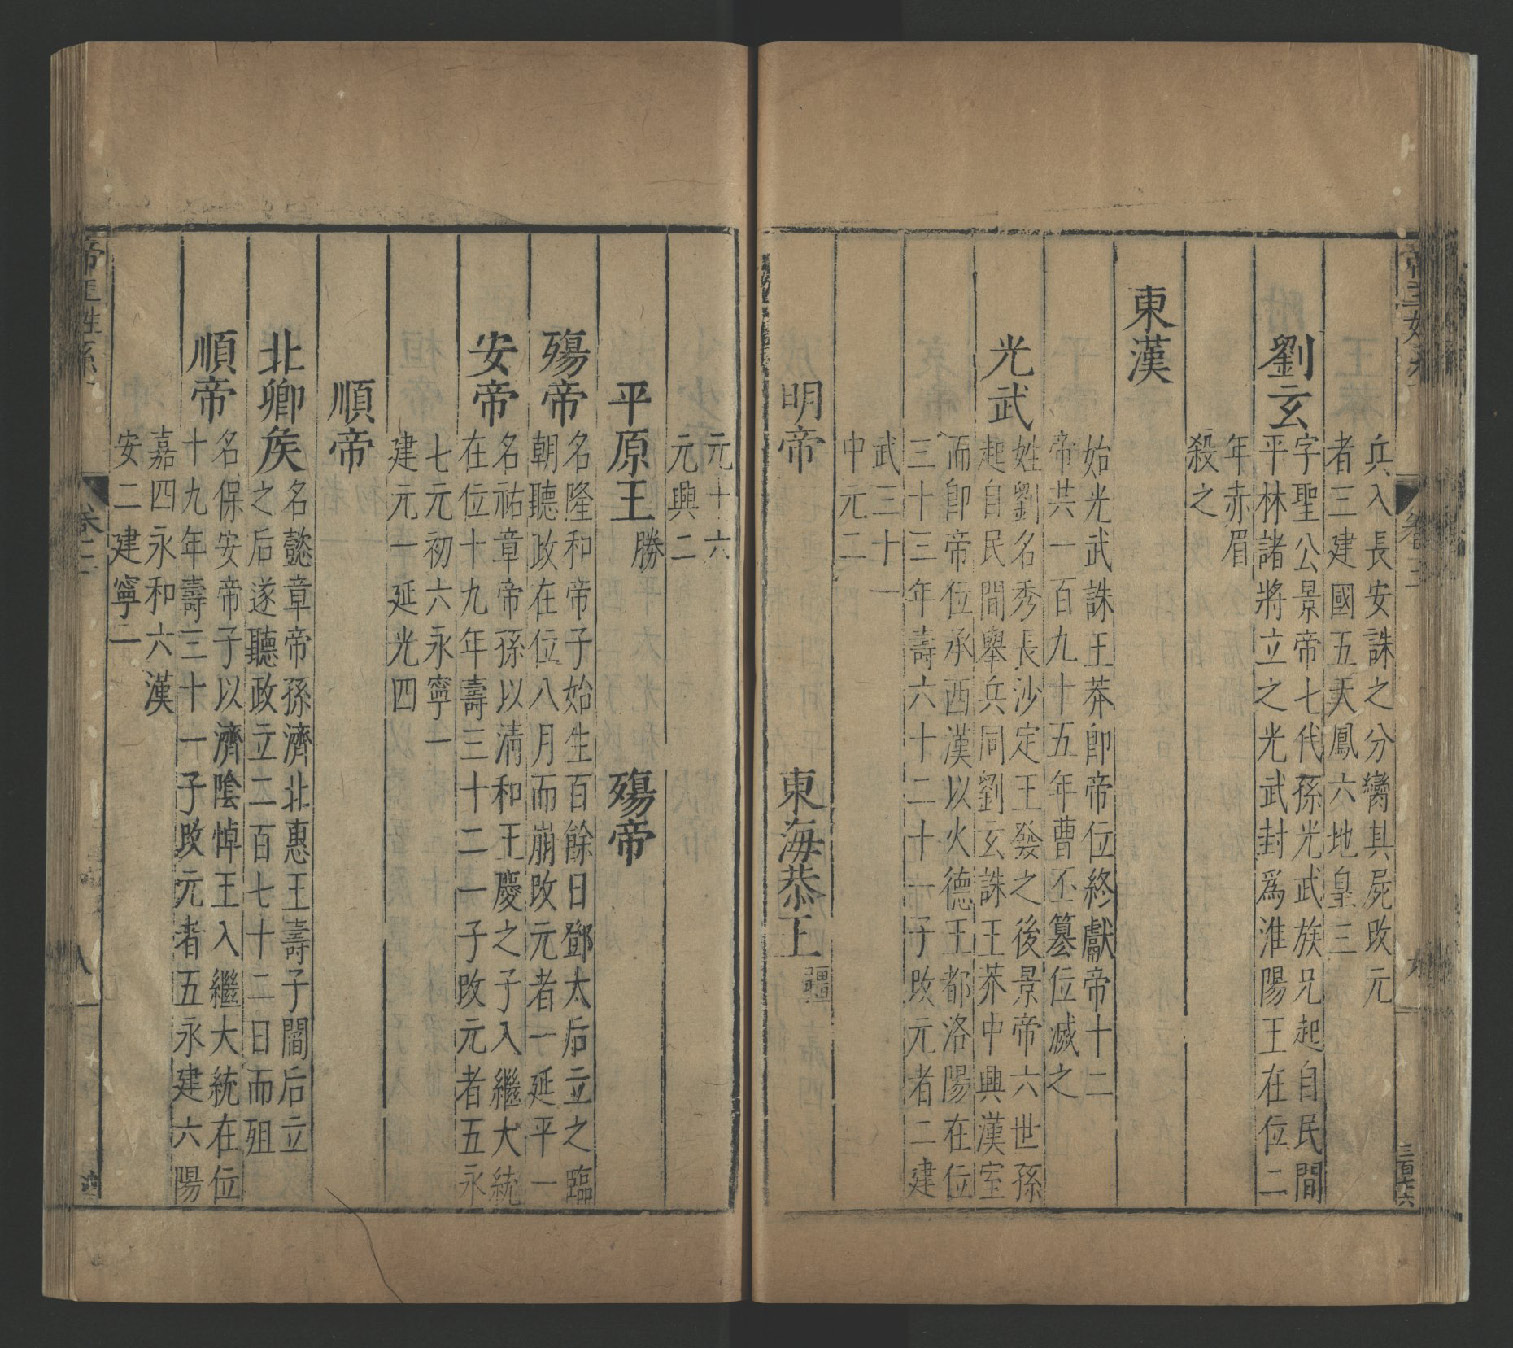 兵入長安誅之分臠其屍攺元
者三建國五天鳳六地皇三
劉玄
字聖公景帝七代孫光武族兄起自民間
平林諸將立之光武封爲淮陽王在位二
年赤眉
殺之
東漢
始光武誅王莽即帝位終獻帝十二
帝共一百九十五年曹丕簒位滅之
光武
姓劉名秀長沙定王發之後景帝六世孫
起自民間舉兵同劉玄誅王莽中興漢室
而即帝位承西漢以火德王都洛陽在位
三十三年壽六十二十一子攺元者二建
武三十一
中元二
明帝 東海恭王疆
元十六
元興二
平原王勝 殤帝
殤帝
名隆和帝子始生百餘日鄧太后立之臨
朝聽政在位八月而崩攺元者一延平一
安帝
名祜章帝孫以清和王慶之子入繼大統
在位十九年壽三十二一子攺元者五永
七元初六永寧一
建元一延光四
順帝
北鄉矦
名懿章帝孫濟北惠王壽子閻后立
之后遂聽政立二百七十二日而殂
順帝
名保安帝子以濟隂悼王入繼大統在位
十九年壽三十一子攺元者五永建六陽
嘉四永和六漢
安二建寧二
帝王姓系
卷二
八